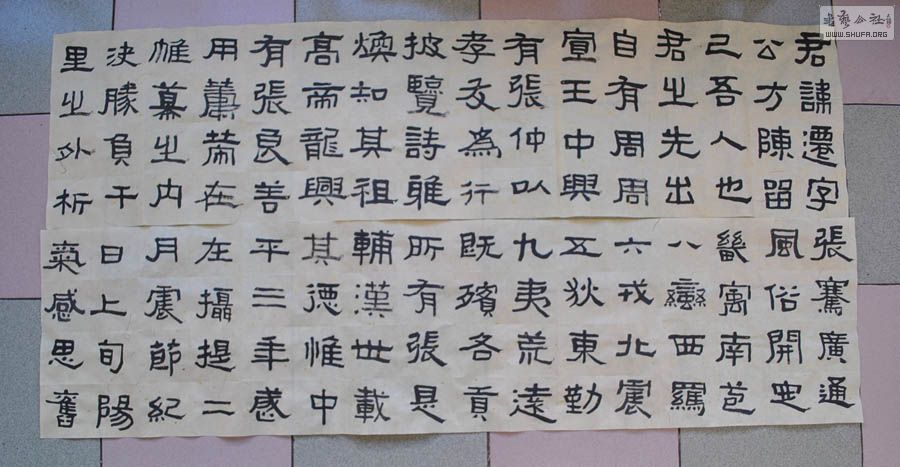 君諱遷字
公方陳留
己吾人也
君之先出
自有周周
宣王中興
有張仲以
孝友為行
披覽詩雅
煥知其祖
高帝龍興
有張良善
用籌策在
帷幕之內
決勝負千
里之外析
張騫廣通
風俗開定
畿寓南苞
八蠻西羈
六戎北震
五狄東勤
九夷荒遠
既殯各貢
所有張是
輔漢世載
其德惟中
平三年歲
在攝提二
月震節紀
日上旬陽
氣感思舊
WWW.SHUFA.ORG